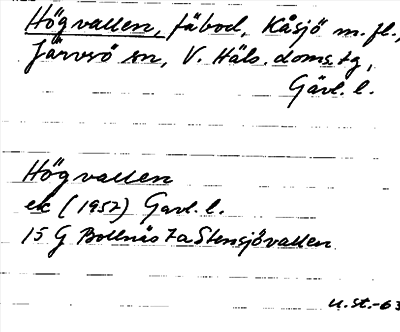 Högvallen, fäbod, Kåsjö m.fl.,
Järvsö sn, V. Häls. doms.tg,
Gävl. l.
Högvallen
ek (1957) Gävl. l.
15 G Bollnäs 7a Stensjövallen
u.st.-63